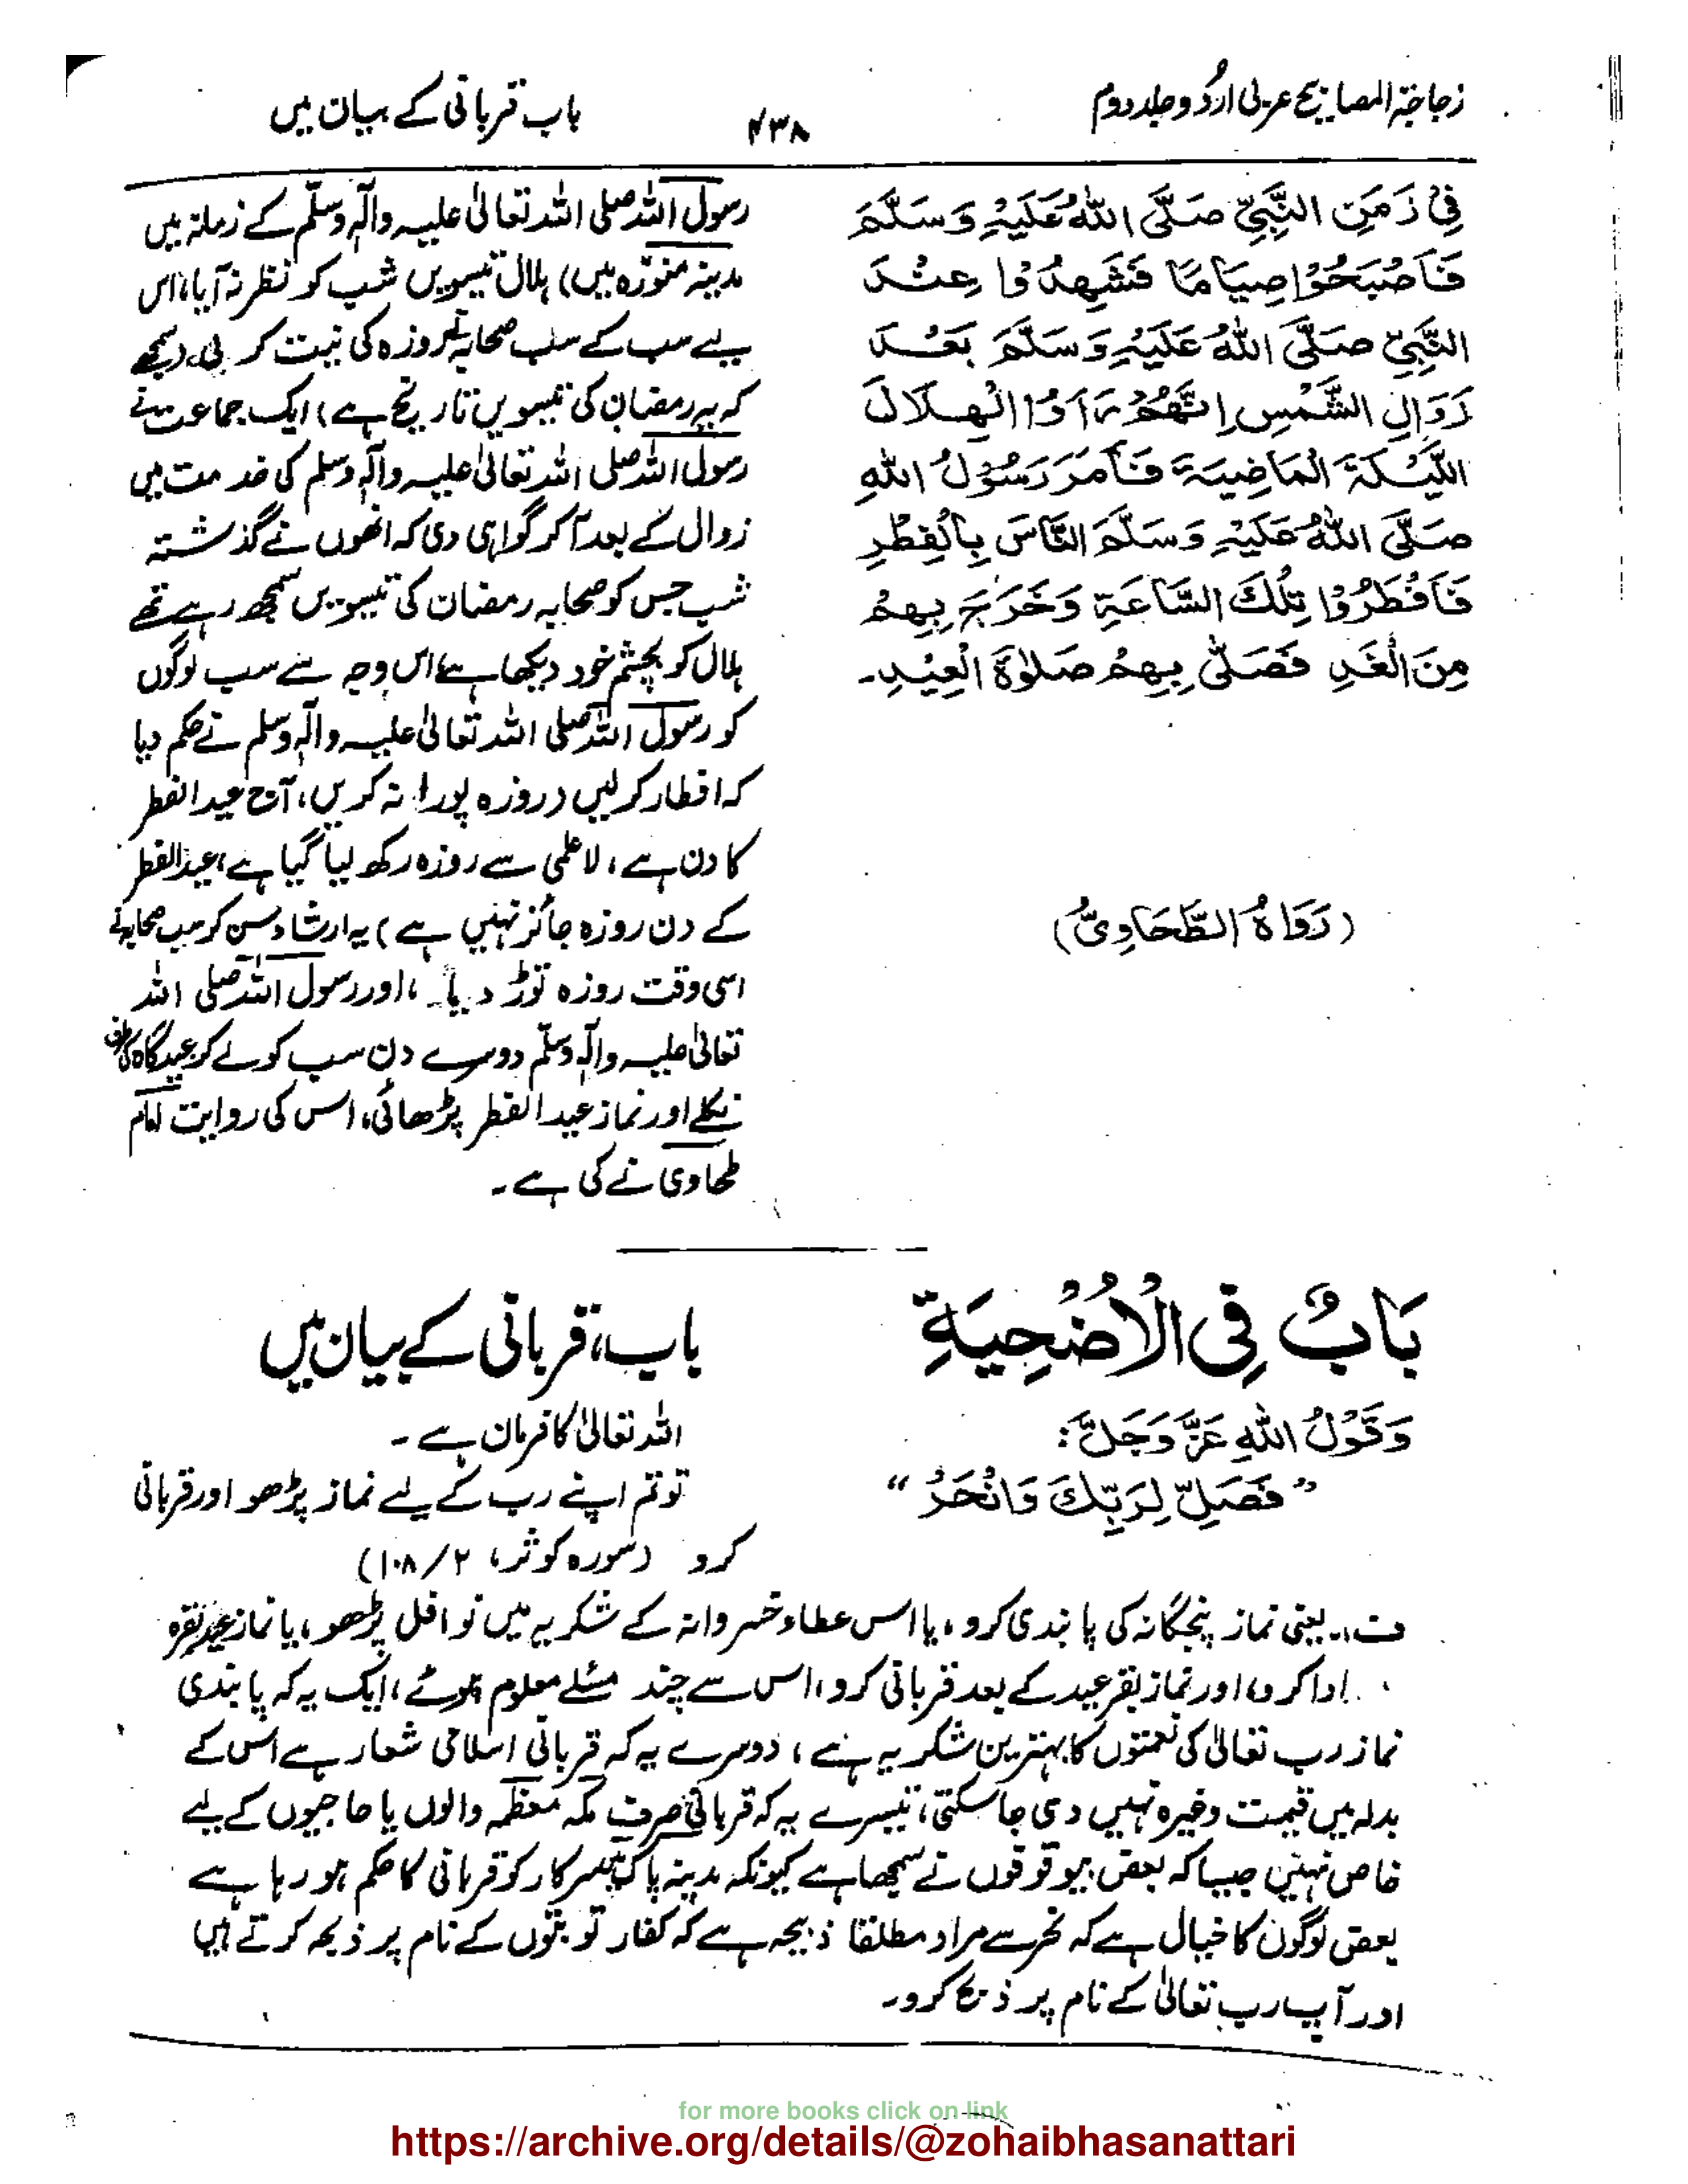 زجاجۃ المصابیح عربی اردُو جلد دوم
۴۳۸
باب قربانی کے بیان میں
فِيْ زَمَنِ النَّبِيِّ صَلَّى اللهُ عَلَيْهِ وَسَلَّمَ
فَأَصْبَحُوْا صِيَامًا فَشَهِدُوْا عِنْدَ
النَّبِيِّ صَلَّى اللهُ عَلَيْهِ وَسَلَّمَ بَعْدَ
زَوَالِ الشَّمْسِ إِنَّهُمْ رَأَوُا الْهِلَالَ
اللَّيْلَةَ الْمَاضِيَةَ فَأَمَرَ رَسُوْلُ اللهِ
صَلَّى اللهُ عَلَيْهِ وَسَلَّمَ النَّاسَ بِالْفِطْرِ
فَأَفْطَرُوْا تِلْكَ السَّاعَةِ وَخَرَجَ بِهِمْ
مِنَ الْغَدِ فَصَلّٰى بِهِمْ صَلٰوةَ الْعِيْدِ۔
(رَوَاهُ الطَّحَاوِيُّ)
رسول اللہ صلی اللہ تعالیٰ علیہ وآلہٖ وسلّم کے زمانہ میں
مدینہ منوّرہ میں) ہلال تیسویں شب کو نظر نہ آیا، اس
لیے سب کے سب صحابہ نے روزہ کی نیت کر لی، (سمجھے
کہ یہ رمضان کی تیسویں تاریخ ہے) ایک جماعت نے
رسول اللہ صلی اللہ تعالیٰ علیہ وآلہٖ وسلم کی خدمت میں
زوال کے بعد آکر گواہی دی کہ انھوں نے گذشتہ
شب جس کو صحابہ رمضان کی تیسویں سمجھ رہے تھے
ہلال کو بچشم خود دیکھا ہے اس وجہ سے سب لوگوں
کو رسول اللہ صلی اللہ تعالیٰ علیہ وآلہٖ وسلم نے حکم دیا
کہ افطار کر لیں (روزہ پورا نہ کریں، آج عید الفطر
کا دن ہے، لاعلمی سے روزہ رکھ لیا گیا ہے، عید الفطر
کے دن روزہ جائز نہیں ہے) یہ ارشاد سن کر سب صحابہ نے
اسی وقت روزہ توڑ دیا، اور رسول اللہ صلی اللہ
تعالیٰ علیہ وآلہٖ وسلّم دوسرے دن سب کو لے کر عیدگاہ کی طرف
نکلے اور نماز عید الفطر پڑھائی، اس کی روایت امام
طحاوی نے کی ہے۔
بَابٌ فِي الْاُضْحِيَةِ
باب، قربانی کے بیان میں
وَقَوْلُ اللهِ عَزَّ وَجَلَّ:
"فَصَلِّ لِرَبِّكَ وَانْحَرْ"
اللہ تعالیٰ کا فرمان ہے۔
تو تم اپنے رب کے لیے نماز پڑھو اور قربانی
کرو (سورہ کوثر، ۱۰۸/۲)
ف۔ یعنی نماز پنجگانہ کی پابندی کرو، یا اس عطاء خسروانہ کے شکریہ میں نوافل پڑھو، یا نماز عید بقرہ
ادا کرو، اور نماز بقر عید کے بعد قربانی کرو، اس سے چند مسئلے معلوم ہوئے، ایک یہ کہ پابندی
نماز رب تعالیٰ کی نعمتوں کا بہترین شکریہ ہے، دوسرے یہ کہ قربانی اسلامی شعار ہے اس کے
بدلہ میں قیمت وغیرہ نہیں دی جا سکتی، تیسرے یہ کہ قربانی صرف مکہ معظمہ والوں یا حاجیوں کے لیے
خاص نہیں جیسا کہ بعض بیوقوفوں نے سمجھا ہے کیونکہ مدینہ پاک میں سرکار کو قربانی کا حکم ہو رہا ہے
بعض لوگوں کا خیال ہے کہ نحر سے مراد مطلقا ذبیحہ ہے کہ کفار تو بتوں کے نام پر ذبحہ کرتے ہیں
اور آپ رب تعالیٰ کے نام پر ذبح کرو۔
for more books click on link
https://archive.org/details/@zohaibhasanattari